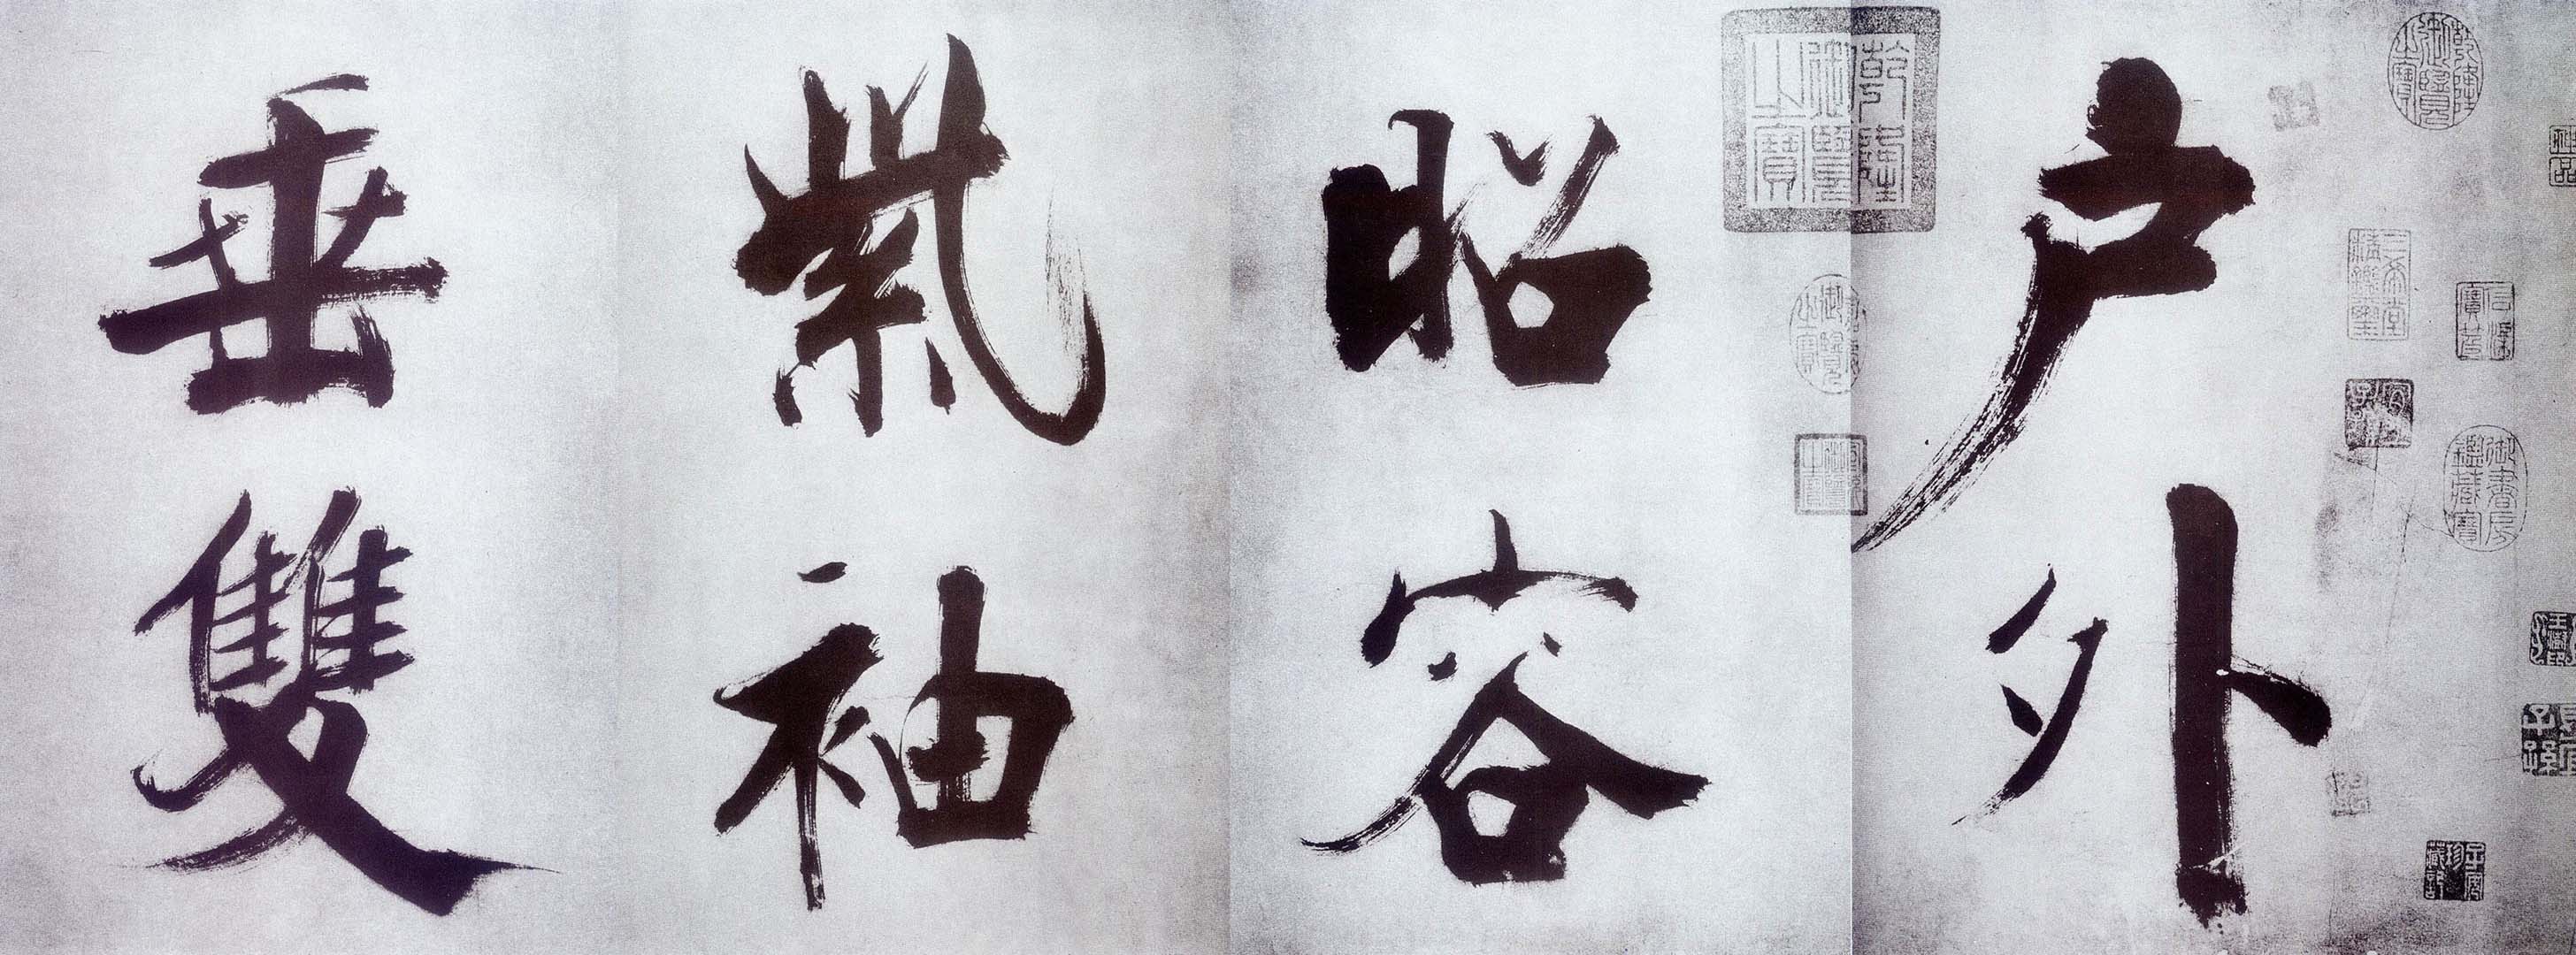 乾隆御覽之寶
三希堂精鑑璽
宜子孫
御書房鑑藏寶
户外
乾隆御覽之寶
昭容
紫袖
垂雙